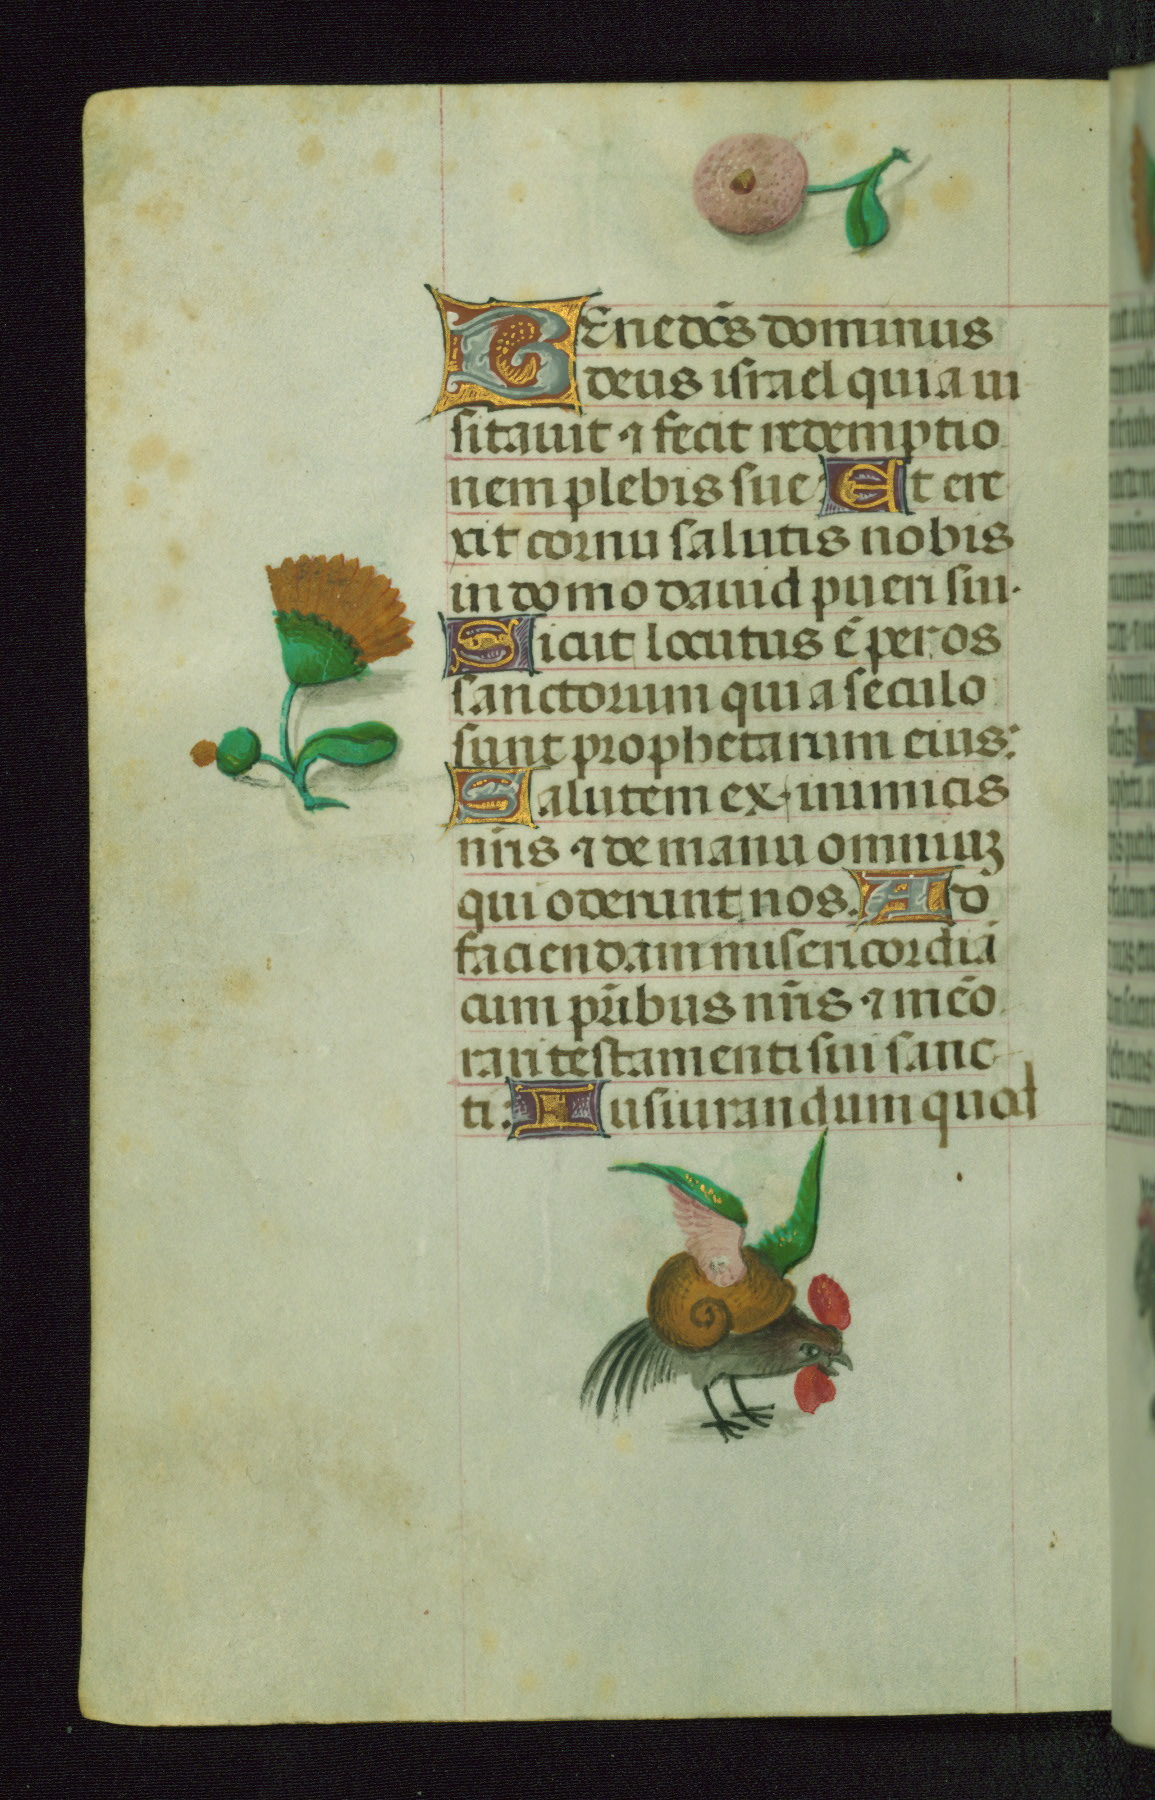 Benedc̄s dominus
deus israel quia ui
sitauit ⁊ fecit redemptio
nem plebis sue Et ere
xit cornu salutis nobis
in domo dauid pueri sui·
Sicut locutus ē per os
sanctorum qui a seculo
sunt prophetarum eius:
Salutem ex inimicis
nr̄is ⁊ de manu omniuꝫ
qui oderunt nos. Ad
faciendam misericordiā
cum pr̄ibus nr̄is ⁊ mēo
rari testamenti sui sanc
ti: Iusiurandum quod